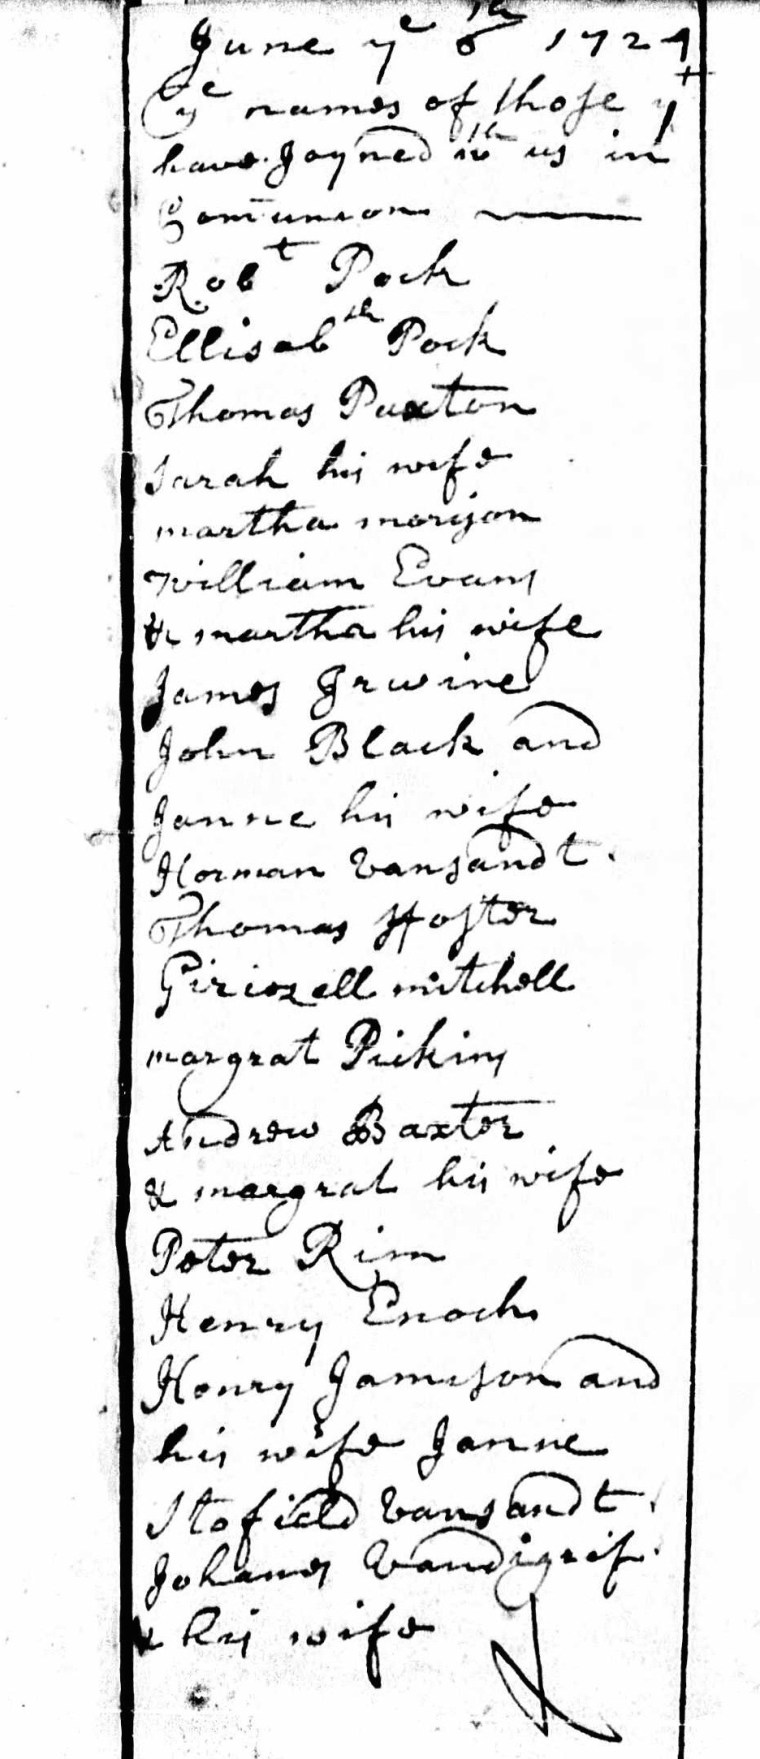 June ye 6th 1724
ye names of those yt
have Joyned wth us in
Comunion
Robt Pock
Ellisabth Pock
Thomas Paxton
Sarah his wife
martha morison
William Evans
& martha his wife
James Irwine
John Black and
Janne his wife
Horman Vansandt
Thomas Foster
Giriozell mitchell
margrat Pickins
Andrew Baxter
& margrat his wife
Peter Rim
Henry Enoch
Henry Jamison and
his wife Janne
Stofield Vansandt
Johanes Vandigrif
& his wife